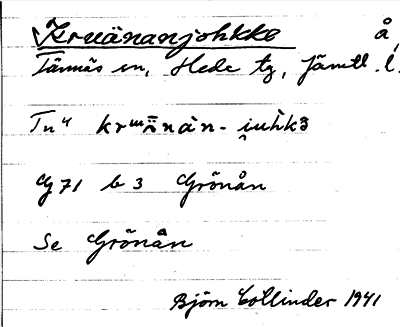 Kruänanjohkke å
Tännäs sn, Hede tg, Jämtl. l.
Tn4
G 71 b 3 Grönån
Se Grönån
Björn Collinder 1941